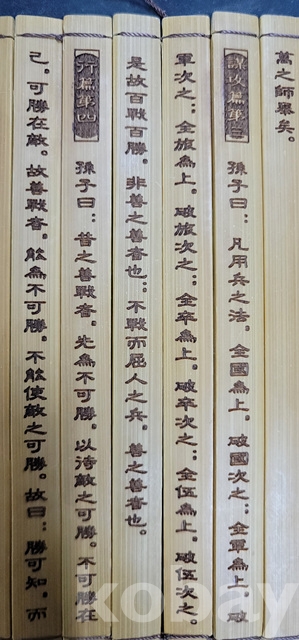 萬之師擧矣。
謀攻篇第三 孫子曰：凡用兵之法。全國為上。破國次之：全軍為上。破
軍次之：全旅為上。破旅次之：全卒為上。破卒次之：全伍為上。破伍次之。
是故百戰百勝。非善之善者也：不戰而屈人之兵。善之善者也。
行篇第四 孫子曰：昔之善戰者。先為不可勝。以待敵之可勝。不可勝在
己。可勝在敵。故善戰者。能為不可勝。不能使敵之可勝。故曰：勝可知。而
kobay